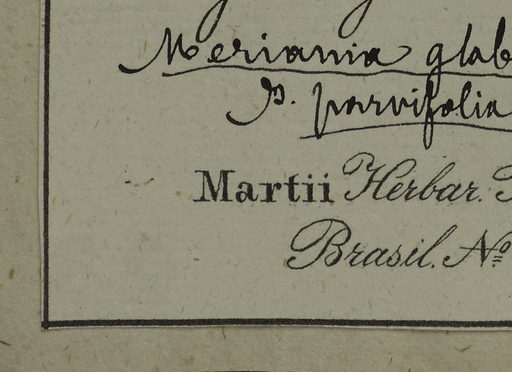 Meriania glab
β. parvifolia
Martii Herbar.
Brasil. Nº